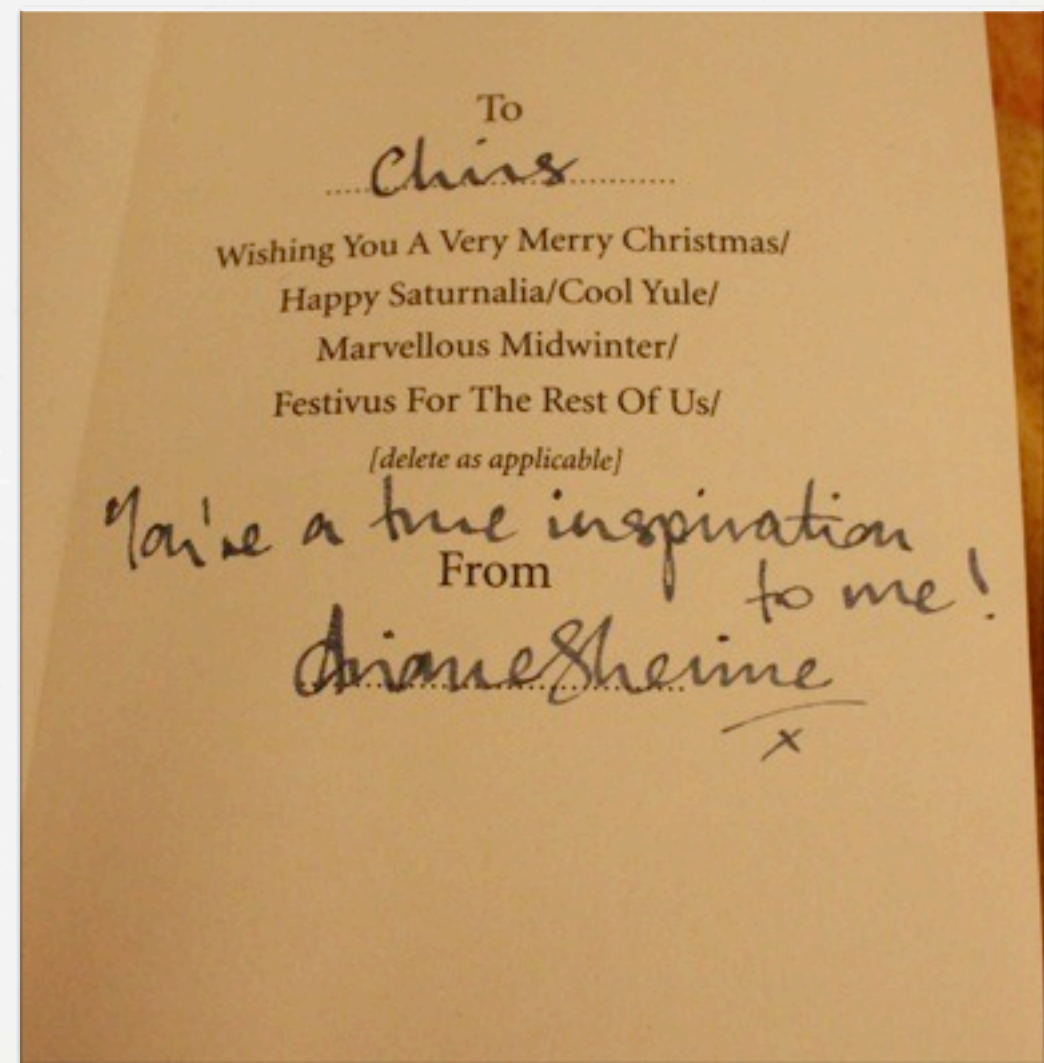 To
Chris
Wishing You A Very Merry Christmas/
Happy Saturnalia/Cool Yule/
Marvellous Midwinter/
Festivus For The Rest Of Us/
[delete as applicable]
You're a true inspiration
to me!
From
Ariane Sherine
x